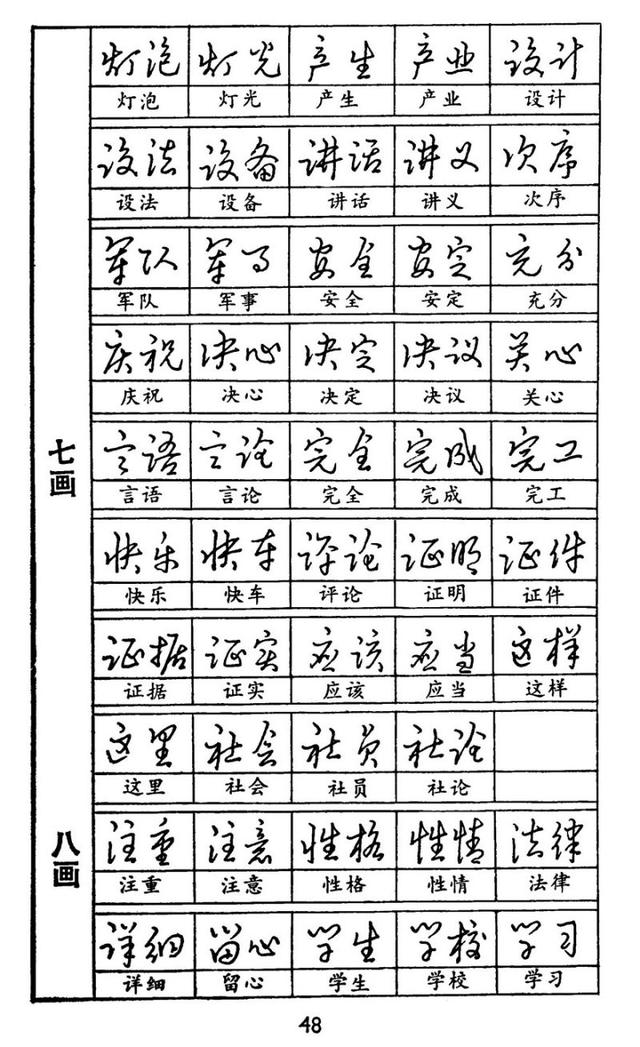 灯泡 灯光 产生 产业 设计
灯泡 灯光 产生 产业 设计
设法 设备 讲话 讲义 次序
设法 设备 讲话 讲义 次序
军队 军事 安全 安定 充分
军队 军事 安全 安定 充分
庆祝 决心 决定 决议 关心
庆祝 决心 决定 决议 关心
七画
言语 言论 完全 完成 完工
言语 言论 完全 完成 完工
快乐 快车 评论 证明 证件
快乐 快车 评论 证明 证件
证据 证实 应该 应当 这样
证据 证实 应该 应当 这样
这里 社会 社员 社论
这里 社会 社员 社论
八画
注重 注意 性格 性情 法律
注重 注意 性格 性情 法律
详细 留心 学生 学校 学习
详细 留心 学生 学校 学习
48